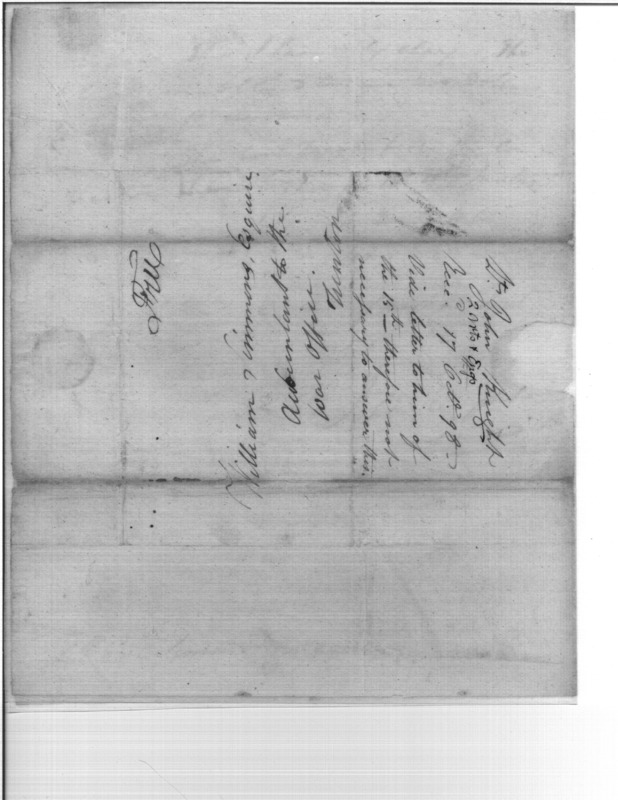 Dr. John Knight
2d Arts & Engs
Recd. 17 Octr. 98 –
Vide letter to him of
the 15th – therefore not
necessary to answer this.
Free
William Simmons, Esquire
Accountant to the
War Office.
Trenton